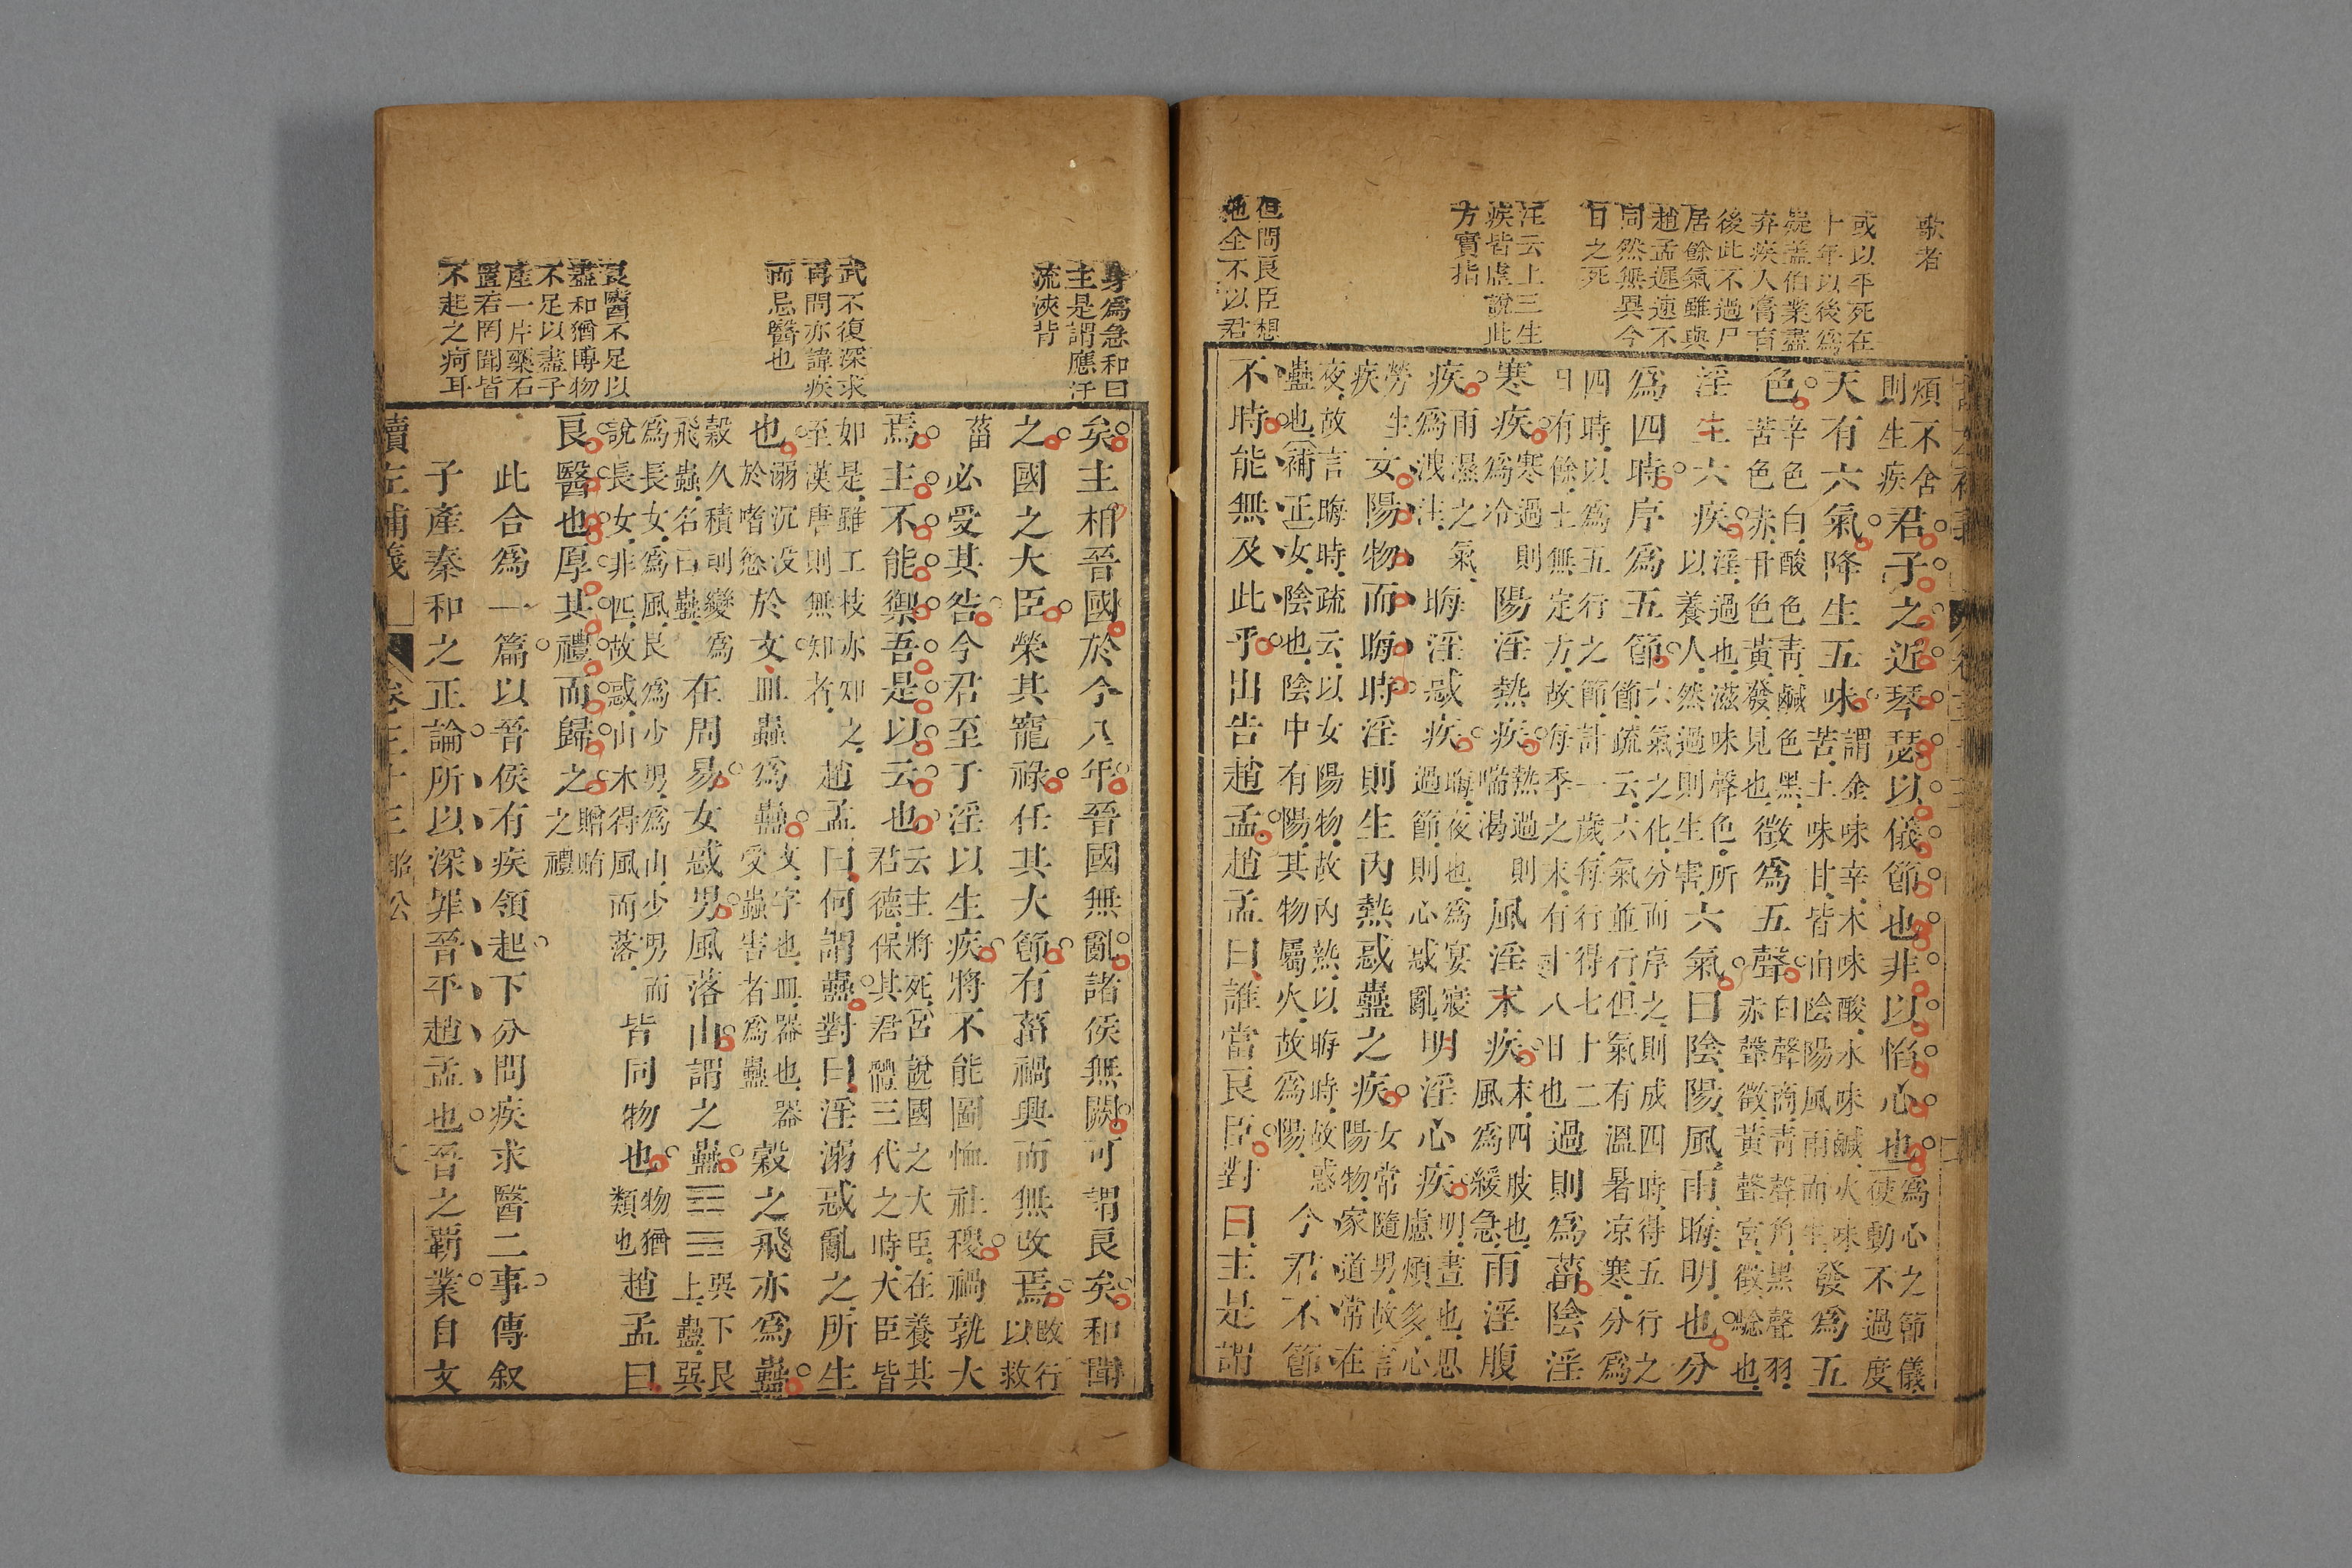 歌者
或以平死在
十年以後爲
疑蓋伯業盡
弃疾人膏肓
後此不過尸
居餘氣雖與
趙孟遲速不
同然無異今
日之死
注云上三生
疾皆虛說此
方實指
但問良臣想
他全不以君
煩不舍
則生疾
君子之近琴瑟以儀節也非以慆心也
爲心之節儀
使動不過度
天有六氣降生五味
謂金味辛木味酸水味鹹火味
苦土味甘皆由陰陽風雨而生
發爲五
色
辛色白酸色靑鹹色黑
苦色赤甘色黃發見也
徵爲五聲
白聲商靑聲角黑聲羽
赤聲徵黃聲宮徵騐也
淫生六疾
淫過也滋味聲色所
以養人然過則生害
六氣曰陰陽風雨晦明也分
爲四時序爲五節
六氣之化分而序之則成四時得五行之
節疏云六氣並行但氣有溫暑凉寒分爲
四時以爲五行之節計一歲每行得七十二
日有餘土無定方故每季之末有十八日也
過則爲菑陰淫
寒疾
寒過則
爲冷
陽淫熱疾
熱過則
喘渴
風淫末疾
末四肢也
風爲緩急
雨淫腹
疾
雨濕之氣
爲洩注
晦淫惑疾
晦夜也爲宴寢
過節則心惑亂
明淫心疾
明晝也思
慮煩多心
勞生
疾
女陽物而晦時淫則生內熱惑蠱之疾
女常隨男故言
陽物家道常在
夜故言晦時疏云以女陽物故內熱以晦時故惑
蠱也補正女陰也陰中有陽其物屬火故爲陽
今君不節
不時能無及此乎出告趙孟趙孟曰誰當良臣對曰主是謂
身爲急和曰
主是謂應汗
流浹背
武不復深求
再問亦諱疾
而忌醫也
良醫不足以
盡和猶博物
不足以盡子
產一片藥石
置若罔聞皆
不起之疴耳
矣主相晉國於今八年晉國無亂諸侯無闕可謂良矣和聞
之國之大臣榮其寵祿任其大節有菑禍興而無改焉
改行
以救
菑
必受其咎今君至于淫以生疾將不能圖恤社稷禍孰大
焉主不能禦吾是以云也
云主將死宮說國之大臣在養其
君德保其君體三代之時大臣皆
如是雖工枝亦知之
至漢唐則無知者
趙孟曰何謂蠱對曰淫溺惑亂之所生
也
溺沉没
於嗜慾
於文皿蟲爲蠱
文字也皿器也器
受蟲害者爲蠱
穀之飛亦爲蠱
穀久積則變爲
飛蟲名曰蠱
在周易女惑男風落山謂之蠱䷑
巽下艮
上蠱巽
爲長女爲風艮爲少男爲山少男而
說長女非匹故惑山木得風而落
皆同物也
物猶
類也
趙孟曰
良醫也厚其禮而歸之
贈賄
之禮
此合爲一篇以晉侯有疾領起下分問疾求醫二事傳叙
子產秦和之正論所以深罪晉平趙孟也吾之覇業自文
讀左補義
卷三十三 昭公